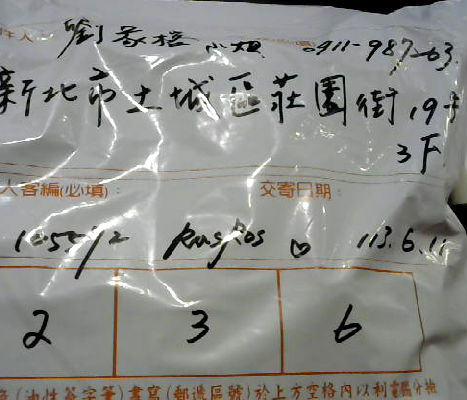 件人 劉家榕 小姐 0911-987-63
新北市土城區莊園街19號
3F
人客編(必填): 交寄日期:
113.6.11
2 3 6
(油性簽字筆)書寫(郵遞區號)於上方空格內以利電腦分揀